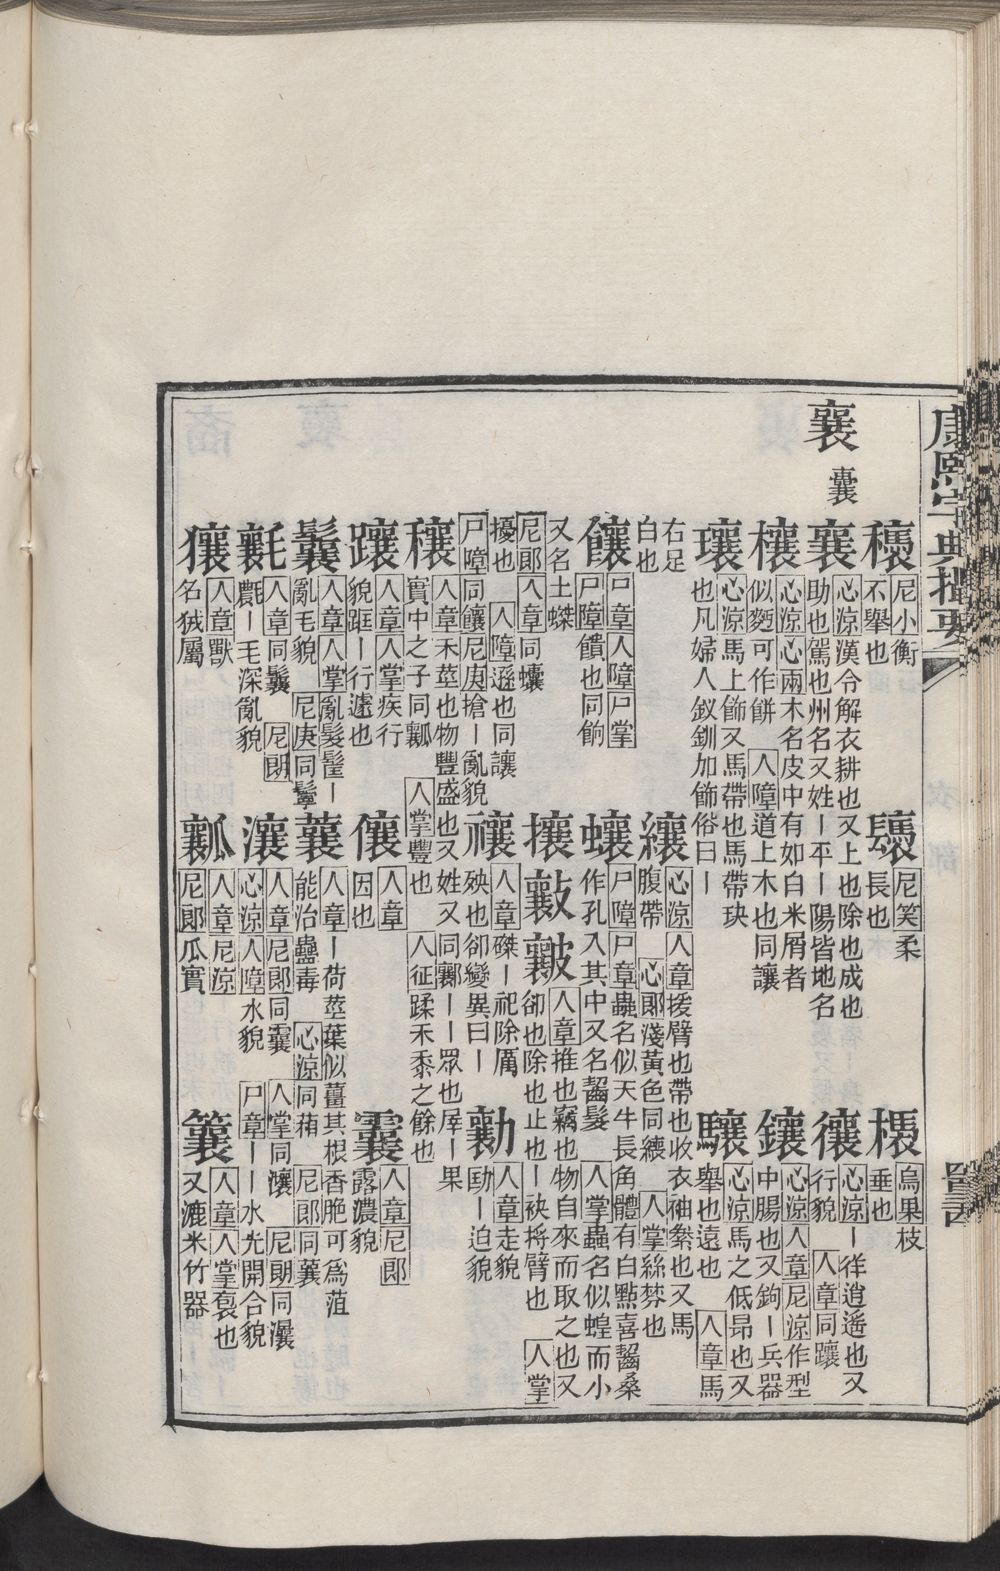 康熙字典撮要
襄 㐮
尼小衡
不舉也
尼笑柔
長也
烏果枝
垂也
襄 心涼漢令解衣耕也又上也除也成也
助也駕也州名又姓ー平ー陽皆地名
心涼ー徉逍遙也又
行貌 人章同躟
欀 心涼心兩木名皮中有如白米屑者
似麫可作餅 人障道上木也同讓
鑲 心涼人章尼涼作型
中腸也又鉤ー兵器
瓖 心涼馬上飾又馬帶也馬帶玦
也凡婦人釵釧加飾俗曰ー
驤 心涼馬之低昂也又
舉也遠也 人章馬
右足
白也
纕 心涼人章援臂也帶也收衣袖絭也又馬
腹帶 心郞淺黃色同纕 人掌絲棼也
饟 尸章人障尸掌
尸障饋也同餉
蠰 尸障尸章蟲名似天牛長角體有白點喜齧桑
作孔入其中又名齧髮 人掌蟲名似蝗而小
又名土蟒
攘 人章推也竊也物自來而取之也又
卻也除也止也ー袂捋臂也 人掌
尼郞人章同蠰
擾也 人障遜也同讓
禳 人章磔ー祀除厲
殃也卻變異曰ー
勷 人章走貌
劻ー迫貌
尸障同饟尼庚搶ー亂貌
穰 人章禾莖也物豐盛也又姓又同 ーー眾也厗ー果
實中之子同瓤 人掌豐也 人征蹂禾黍之餘也
躟 人章人掌疾行
貌躟ー行遽也
儴 人章
因也
人章尼郞
露濃貌
鬤 人章人掌亂髮髽ー
亂毛貌 尼庚同鬡
蘘 人章ー荷莖葉似薑其根香脆可爲菹
能治蠱毒 心涼同葙 尼郞同蘘
人章同鬤 尼朗
氍ー毛深亂貌
瀼 人章尼郞同 人掌同瀼 尼朗同灢
心涼人障水貌 尸章ーー水光開合貌
獽 人章獸
名狨屬
瓤 人章尼涼
尼郞瓜實
簑 人章人掌裒也
又漉米竹器